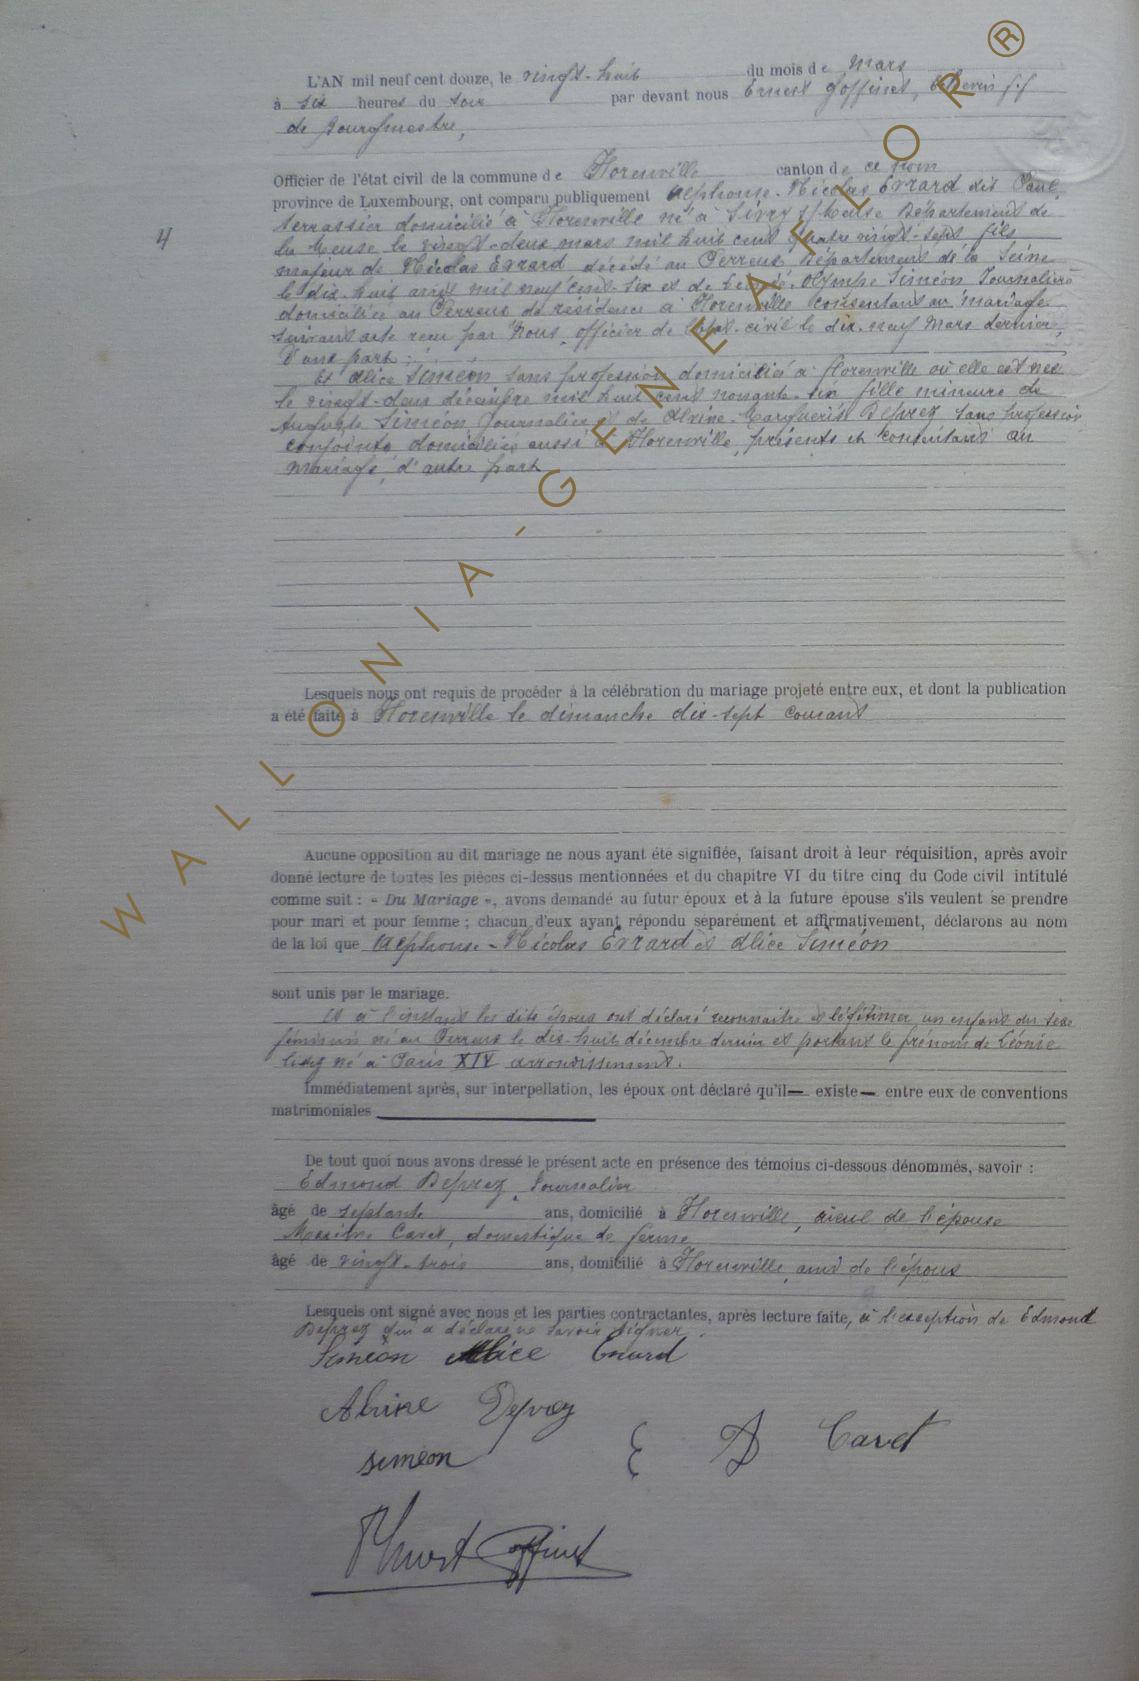 L'AN mil neuf cent douze, le vingt-huit du mois de Mars
à six heures du soir par devant nous Ernest Goffinet, Echevin f.f
de Bourgmestre,
Officier de l'état civil de la commune de Florenville canton de ce nom
province de Luxembourg, ont comparu publiquement Alphonse-Nicolas Evrard dit Paul,
terrassier domicilié à Florenville né à Sivry s/Meuse Département de
la Meuse le vingt-deux mars mil huit cent quatre vingt-sept fils
majeur de Nicolas Evrard décédé au Perreux Département de la Seine
le dix-huit avril mil neuf cent-six et de Olympe Siméon Journalière
domiciliée au Perreux de résidence à Florenville consentant au mariage
suivant acte reçu par Nous, officier de l'état-civil le dix-neuf Mars dernier,
d'une part ;
4
Et Alice Siméon sans profession domiciliée à Florenville où elle est née
le vingt-deux décembre mil huit cent nonante-six fille mineure de
Auguste Siméon Journalier et de Alvine-Marguerite Deprez sans profession
conjoints domiciliés aussi à Florenville, présents et consentant au
mariage, d'autre part
Lesquels nous ont requis de procéder à la célébration du mariage projeté entre eux, et dont la publication
a été faite à Florenville le dimanche dix-sept courant
Aucune opposition au dit mariage ne nous ayant été signifiée, faisant droit à leur réquisition, après avoir
donné lecture de toutes les pièces ci-dessus mentionnées et du chapitre VI du titre cinq du Code civil intitulé
comme suit : « Du Mariage », avons demandé au futur époux et à la future épouse s'ils veulent se prendre
pour mari et pour femme ; chacun d'eux ayant répondu séparément et affirmativement, déclarons au nom
de la loi que Alphonse-Nicolas Evrard et Alice Siméon
sont unis par le mariage.
Et à l'instant les dits époux ont déclaré reconnaitre et légitimer un enfant du sexe
féminin né au Perreux le dix-huit décembre dernier et portant le prénom de Léonie
né à Paris XIV arrondissement.
Immédiatement après, sur interpellation, les époux ont déclaré qu'il— existe — entre eux de conventions
matrimoniales
De tout quoi nous avons dressé le présent acte en présence des témoins ci-dessous dénommés, savoir :
Edmond Deprez, Journalier
âgé de septante ans, domicilié à Florenville, aieul de l'épouse
Cavet, domestique de ferme
âgé de vingt-trois ans, domicilié à Florenville, ami de l'époux
Lesquels ont signé avec nous et les parties contractantes, après lecture faite, à l'exception de Edmond
Deprez qui a déclaré ne savoir signer.
Siméon Alice Evrard
Alvine Deprez
Siméon E D Cavet
Ernest Goffinet
WALLONIA-GENEAFLOR®